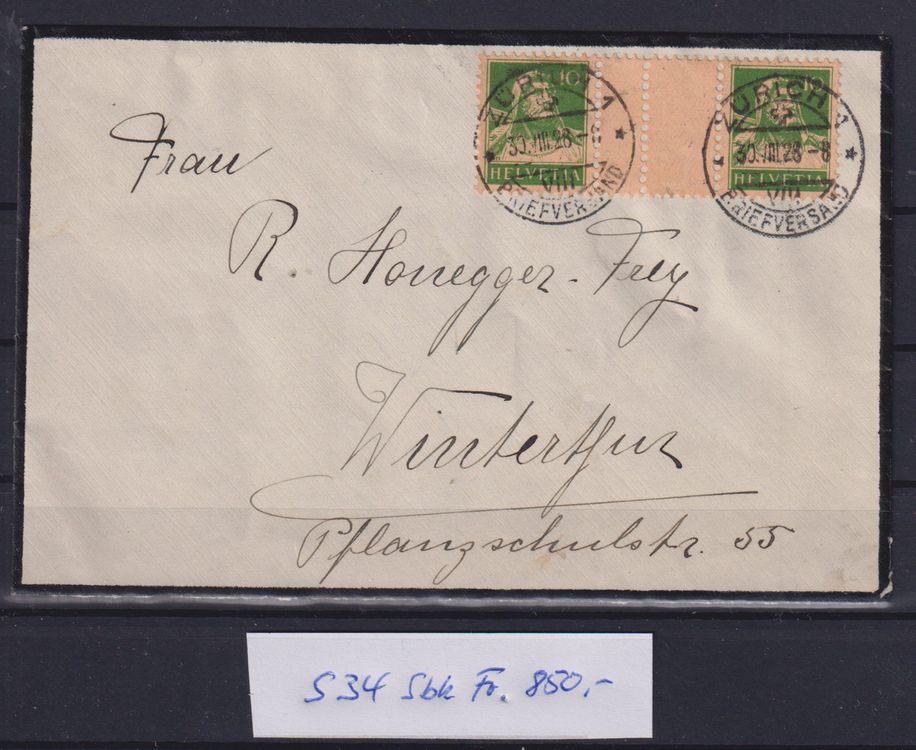 10
HELVETIA
10
HELVETIA
ZÜRICH 1
30.VIII.28–8
VIII
BRIEFVERSAND
ZÜRICH 1
30.VIII.28–8
VIII
BRIEFVERSAND
Frau
R. Honegger-Frey
Winterthur
Pflanzschulstr. 55
S34 Sbk Fr. 850.-